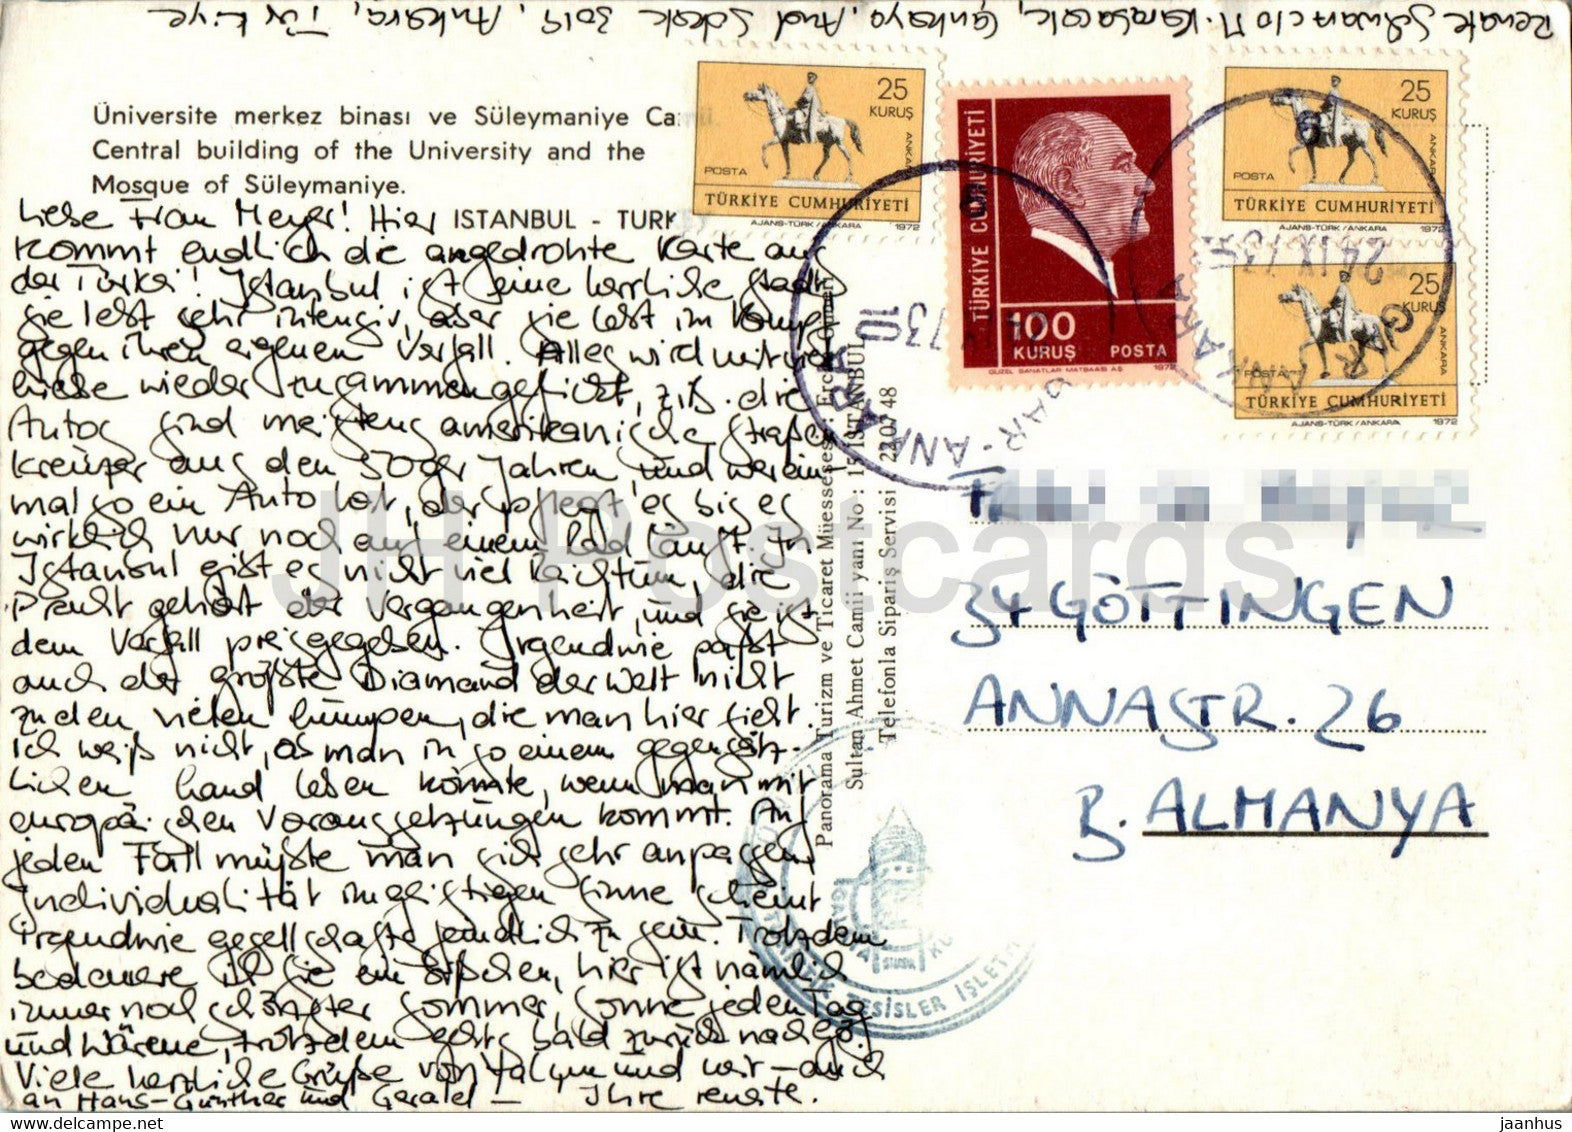 Renate Schwarz c/o M. Karasacak, Çankaya, And Sokak 30/9, Ankara, Türkiye
Üniversite merkez binası ve Süleymaniye Camii
Central building of the University and the
Mosque of Süleymaniye.
ISTANBUL - TURKEY
Liebe Frau Meyer! Hier
kommt endlich die angedrohte Karte aus
der Türkei! Istanbul ist eine herrliche Stadt,
sie lebt sehr intensiv, aber sie lebt im Kampf
gegen ihren eigenen Verfall. Alles wird mit viel
Liebe wieder zusammengeflickt, z.B. die
Autos sind meistens amerikanische Straßen
kreuzer aus den 50ger Jahren, und wer ein
mal so ein Auto hat, der pflegt es bis es
wirklich nur noch auf einem Rad läuft. In
Istanbul gibt es nicht viel Reichtum, die
Pracht gehört der Vergangenheit, und sie ist
dem Verfall preisgegeben. Irgendwie paßt
auch der größte Diamand der Welt nicht
zu den vielen Lumpen, die man hier sieht.
Ich weiß nicht, ob man in so einem gegensätz-
lichen Land leben könnte, wenn man mit
europäischen Voraussetzungen kommt. Auf
jeden Fall müßte man sich sehr anpassen,
Individualität im geistigen Sinne scheint
irgendwie gesellschaftsfeindlich zu sein. Trotzdem
bedauere ich Sie ein bißchen, hier ist nämlich
immer noch schönster Sommer, Sonne jeden Tag
und Wärme, trotzdem gehts bald zurück nach Gö.
Viele herzliche Grüße von und wir – auch
an Hans-Günther und Gerald – Ihre Renate.
Panorama Turizm ve Ticaret Müessesesi:
Sultan Ahmet Camii yanı No : 15 ISTANBUL
Telefonla Sipariş Servisi 22 07 48
25
KURUŞ
POSTA
ANKARA
TÜRKİYE CUMHURİYETİ
AJANS-TÜRK/ANKARA 1972
TÜRKİYE CUMHURİYETİ
100
KURUŞ POSTA
GÜZEL SANATLAR MATBAASI A.Ş. 1972
25
KURUŞ
POSTA
ANKARA
TÜRKİYE CUMHURİYETİ
AJANS-TÜRK/ANKARA 1972
25
KURUŞ
POSTA
ANKARA
TÜRKİYE CUMHURİYETİ
AJANS-TÜRK/ANKARA 1972
GAR - ANKARA
24 IX 73
10
34 GÖTTINGEN
ANNASTR. 26
B. ALMANYA
TURİSTİK TESİSLER İŞLETM
GALATA KULE
JH Postcards
www.delcampe.net
jaanhus